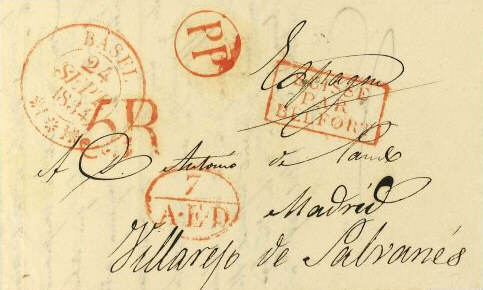 BASEL
24
SEPT
PP
Espagne
SUISSE
PAR
BELFORT
5R
A D. António de
7
A.E.D
Madrid
Villarejo de Salvanés